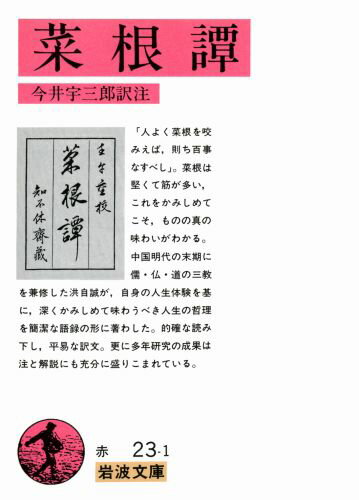 菜根譚
今井宇三郎訳注
「人よく菜根を咬
みえば，則ち百事
なすべし」。菜根は
堅くて筋が多い，
これをかみしめて
こそ，ものの真の
味わいがわかる。
中国明代の末期に
儒・仏・道の三教
を兼修した洪自誠が，自身の人生体験を基
に，深くかみしめて味わうべき人生の哲理
を簡潔な語録の形に著わした。的確な読み
下し，平易な訳文。更に多年研究の成果は
注と解説にも充分に盛りこまれている。
壬午重校
菜根譚
知不休齋藏
赤 23-1
岩波文庫